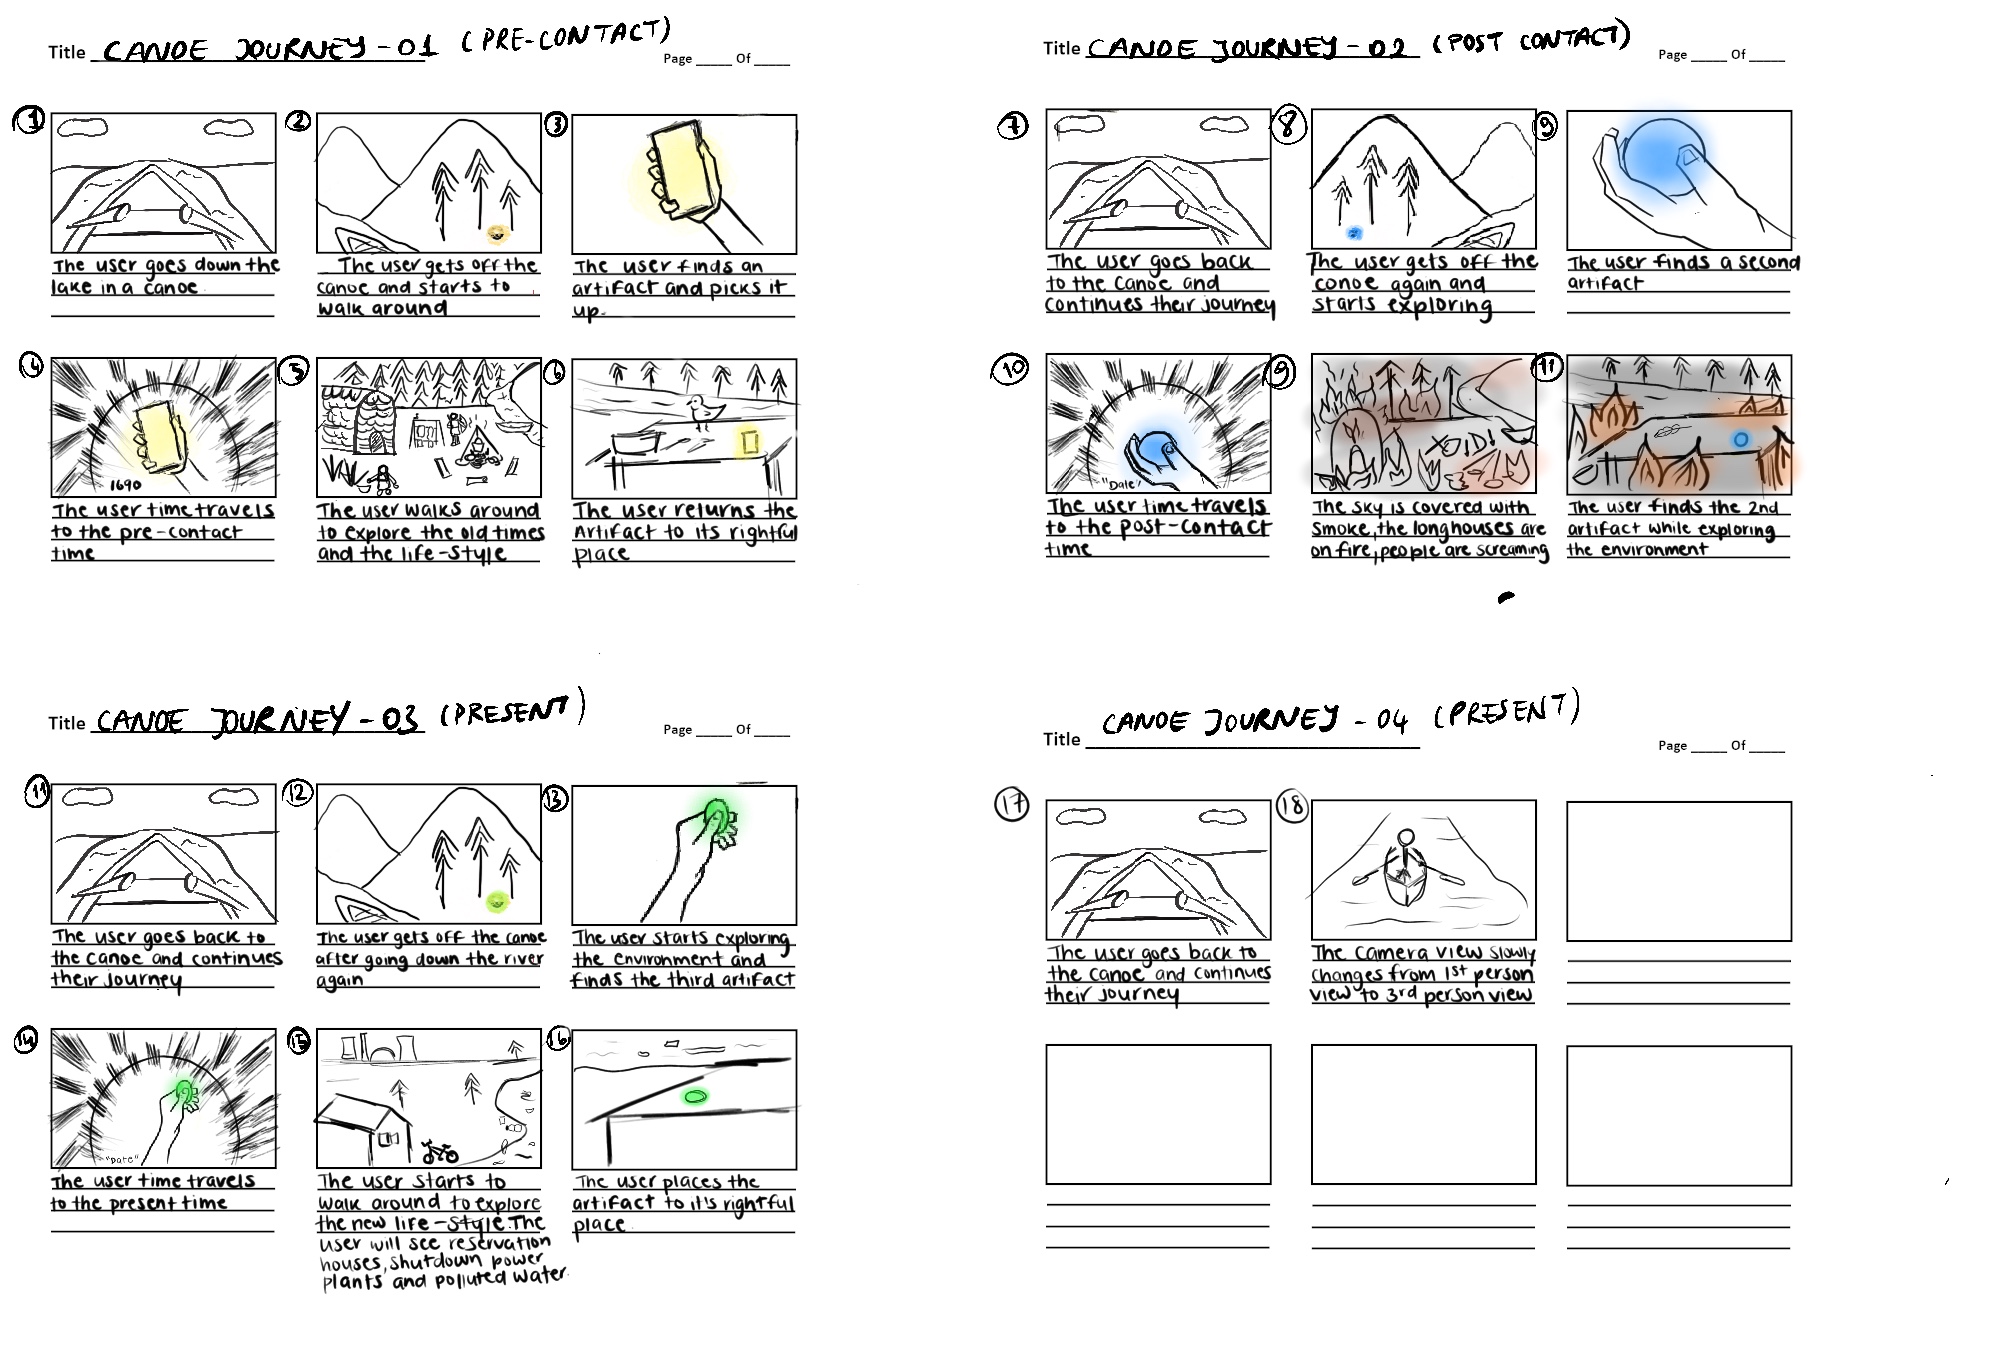 Title CANOE JOURNEY-01 (PRE-CONTACT)
Page _____ Of _____
1
The user goes down the
lake in a canoe
2
The user gets off the
canoe and starts to
walk around
3
The user finds an
artifact and picks it
up.
4
1690
The user time travels
to the pre-contact
time
5
The user walks around
to explore the old times
and the life-style
6
The user returns the
Artifact to its rightful
place
Title CANOE JOURNEY-02 (POST CONTACT)
Page _____ Of _____
7
The user goes back
to the canoe and
continues their journey
8
The user gets off the
conoe again and
starts exploring
9
The user finds a second
artifact
10
"Date"
The user time travels
to the post-contact
time
9
The sky is covered with
smoke, the longhouses are
on fire, people are screaming
11
The user finds the 2nd
artifact while exploring
the environment
Title CANOE JOURNEY-03 (PRESENT)
Page _____ Of _____
11
The user goes back to
the canoe and continues
their journey
12
The user gets off the canoe
after going down the river
again
13
The user starts exploring
the environment and
finds the third artifact
14
"Date"
The user time travels
to the present time
15
The user starts to
walk around to explore
the new life-style. The
user will see reservation
houses, shutdown power
plants and polluted water.
16
The user places the
artifact to it's rightful
place
Title CANOE JOURNEY - 04 (PRESENT)
Page _____ Of _____
17
The user goes back to
the canoe and continues
their journey
18
The camera view slowly
changes from 1st person
view to 3rd person view